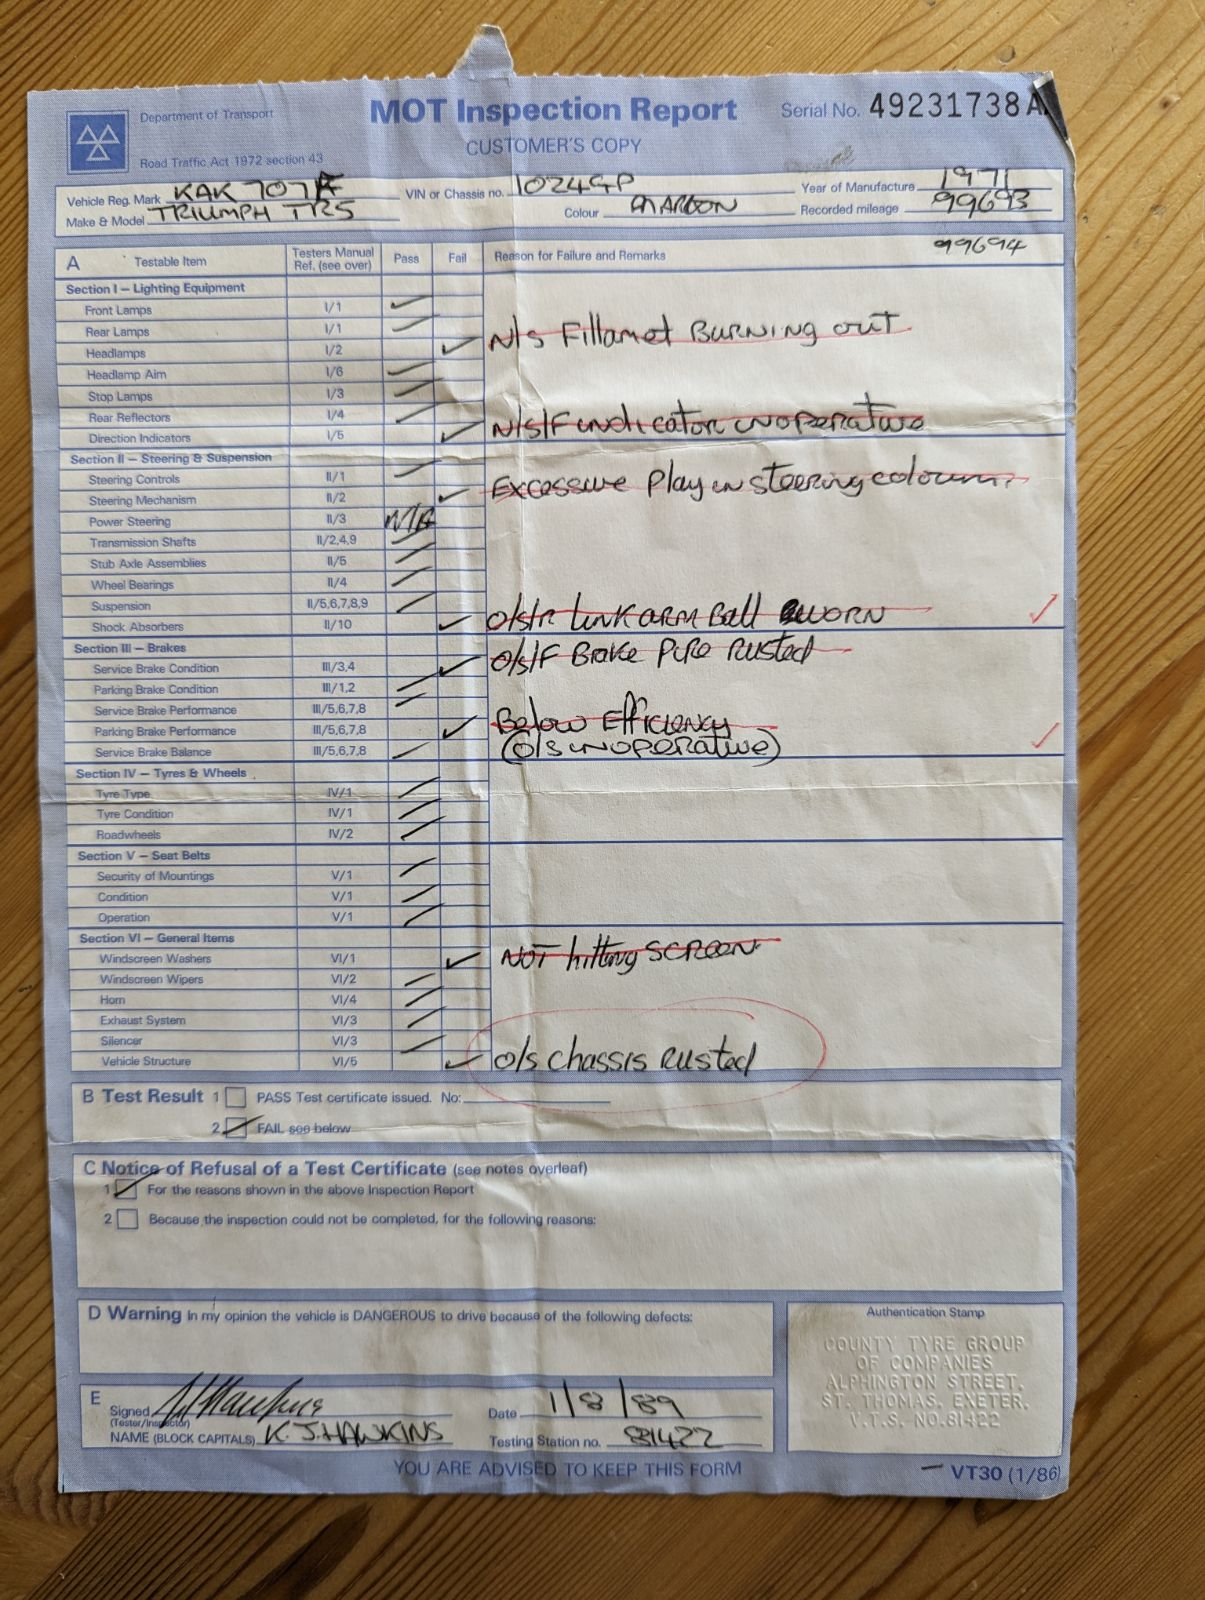 Department of Transport
MOT Inspection Report
Serial No. 49231738A
CUSTOMER'S COPY
Road Traffic Act 1972 section 43
Vehicle Reg. Mark KAK 707
VIN or Chassis no. 1024GP
Year of Manufacture 1971
Make & Model TRIUMPH TR5
Colour MAROON
Recorded mileage 99693
A Testable Item Testers Manual Ref. (see over) Pass Fail Reason for Failure and Remarks 99694
Section I – Lighting Equipment
Front Lamps I/1
Rear Lamps I/1
Headlamps I/2 N/S Fillamet Burning out
Headlamp Aim I/6
Stop Lamps I/3
Rear Reflectors I/4
Direction Indicators I/5 N/S/F indicator inoperative
Section II – Steering & Suspension
Steering Controls II/1
Steering Mechanism II/2 Excessive Play in steering
Power Steering II/3 N/A
Transmission Shafts II/2,4,9
Stub Axle Assemblies II/5
Wheel Bearings II/4
Suspension II/5,6,7,8,9
Shock Absorbers II/10 O/S/R Link ARM Ball WORN
Section III – Brakes
Service Brake Condition III/3,4 O/S/F Brake Pipe Rusted
Parking Brake Condition III/1,2
Service Brake Performance III/5,6,7,8
Parking Brake Performance III/5,6,7,8 Below Efficiency
(O/S inoperative)
Service Brake Balance III/5,6,7,8
Section IV – Tyres & Wheels
Tyre Type IV/1
Tyre Condition IV/1
Roadwheels IV/2
Section V – Seat Belts
Security of Mountings V/1
Condition V/1
Operation V/1
Section VI – General Items
Windscreen Washers VI/1 NOT hitting SCREEN
Windscreen Wipers VI/2
Horn VI/4
Exhaust System VI/3
Silencer VI/3
Vehicle Structure VI/5 O/S Chassis Rusted
B Test Result 1 PASS Test certificate issued. No:
2 FAIL see below
C Notice of Refusal of a Test Certificate (see notes overleaf)
1 For the reasons shown in the above Inspection Report
2 Because the inspection could not be completed, for the following reasons:
D Warning In my opinion the vehicle is DANGEROUS to drive because of the following defects:
Authentication Stamp
COUNTY TYRE GROUP
OF COMPANIES
ALPHINGTON STREET,
ST. THOMAS, EXETER.
T.S. NO.81422
E
Signed
(Tester/Inspector)
Date 1/8/89
NAME (BLOCK CAPITALS) K. J. HAWKINS
Testing Station no. 81422
YOU ARE ADVISED TO KEEP THIS FORM
VT30 (1/86)